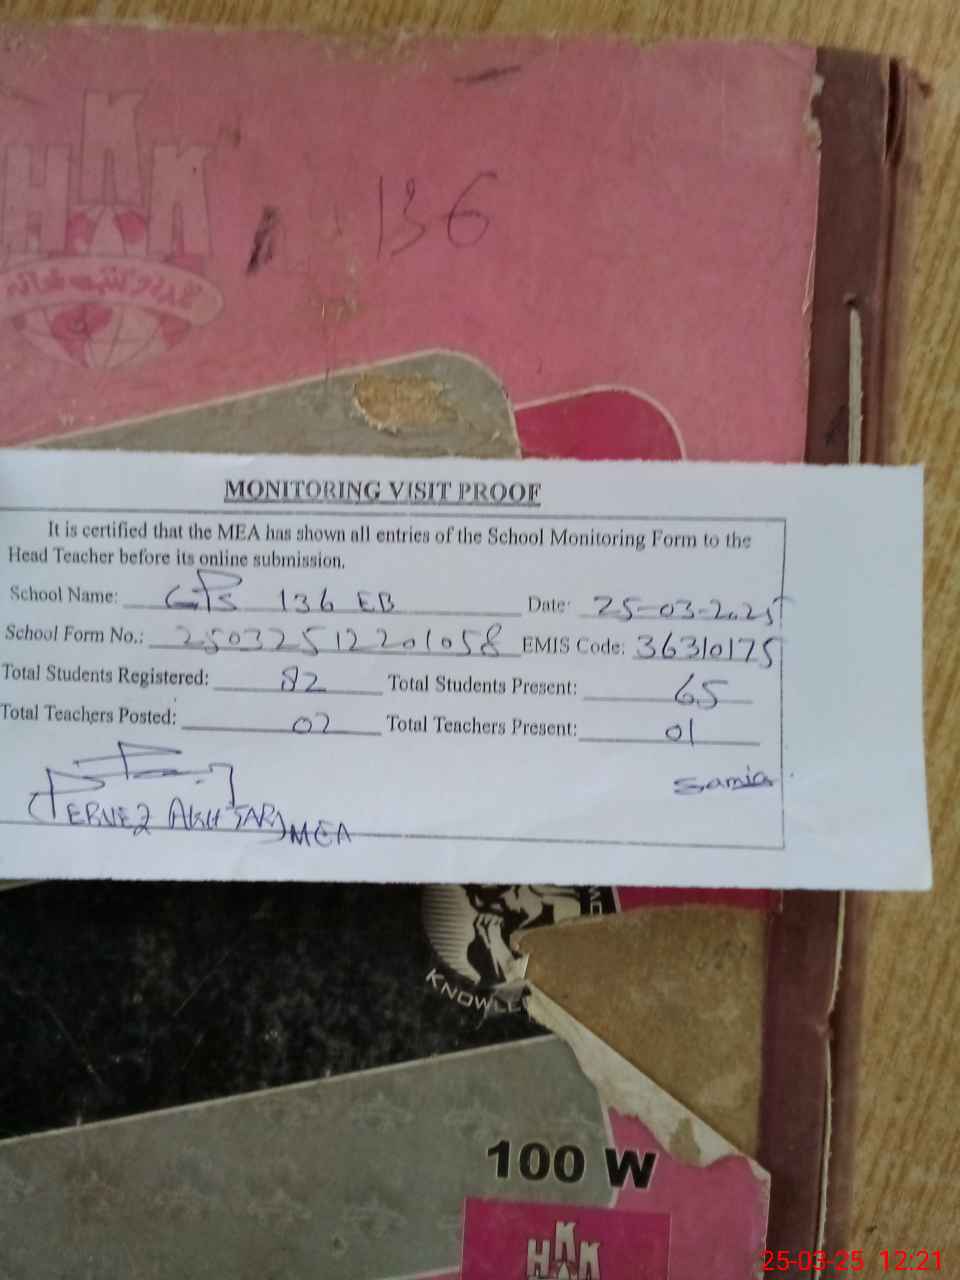 HKK
136
MONITORING VISIT PROOF
It is certified that the MEA has shown all entries of the School Monitoring Form to the
Head Teacher before its online submission.
School Name: GPS 136 EB Date: 25-03-2025
School Form No.: 25032512201058 EMIS Code: 36310175
Total Students Registered: 82 Total Students Present: 65
Total Teachers Posted: 02 Total Teachers Present: 01
Samia
(PERVEZ AKHTAR) MEA
KNOWLE
100 W
HKK
25-03-25 12:21